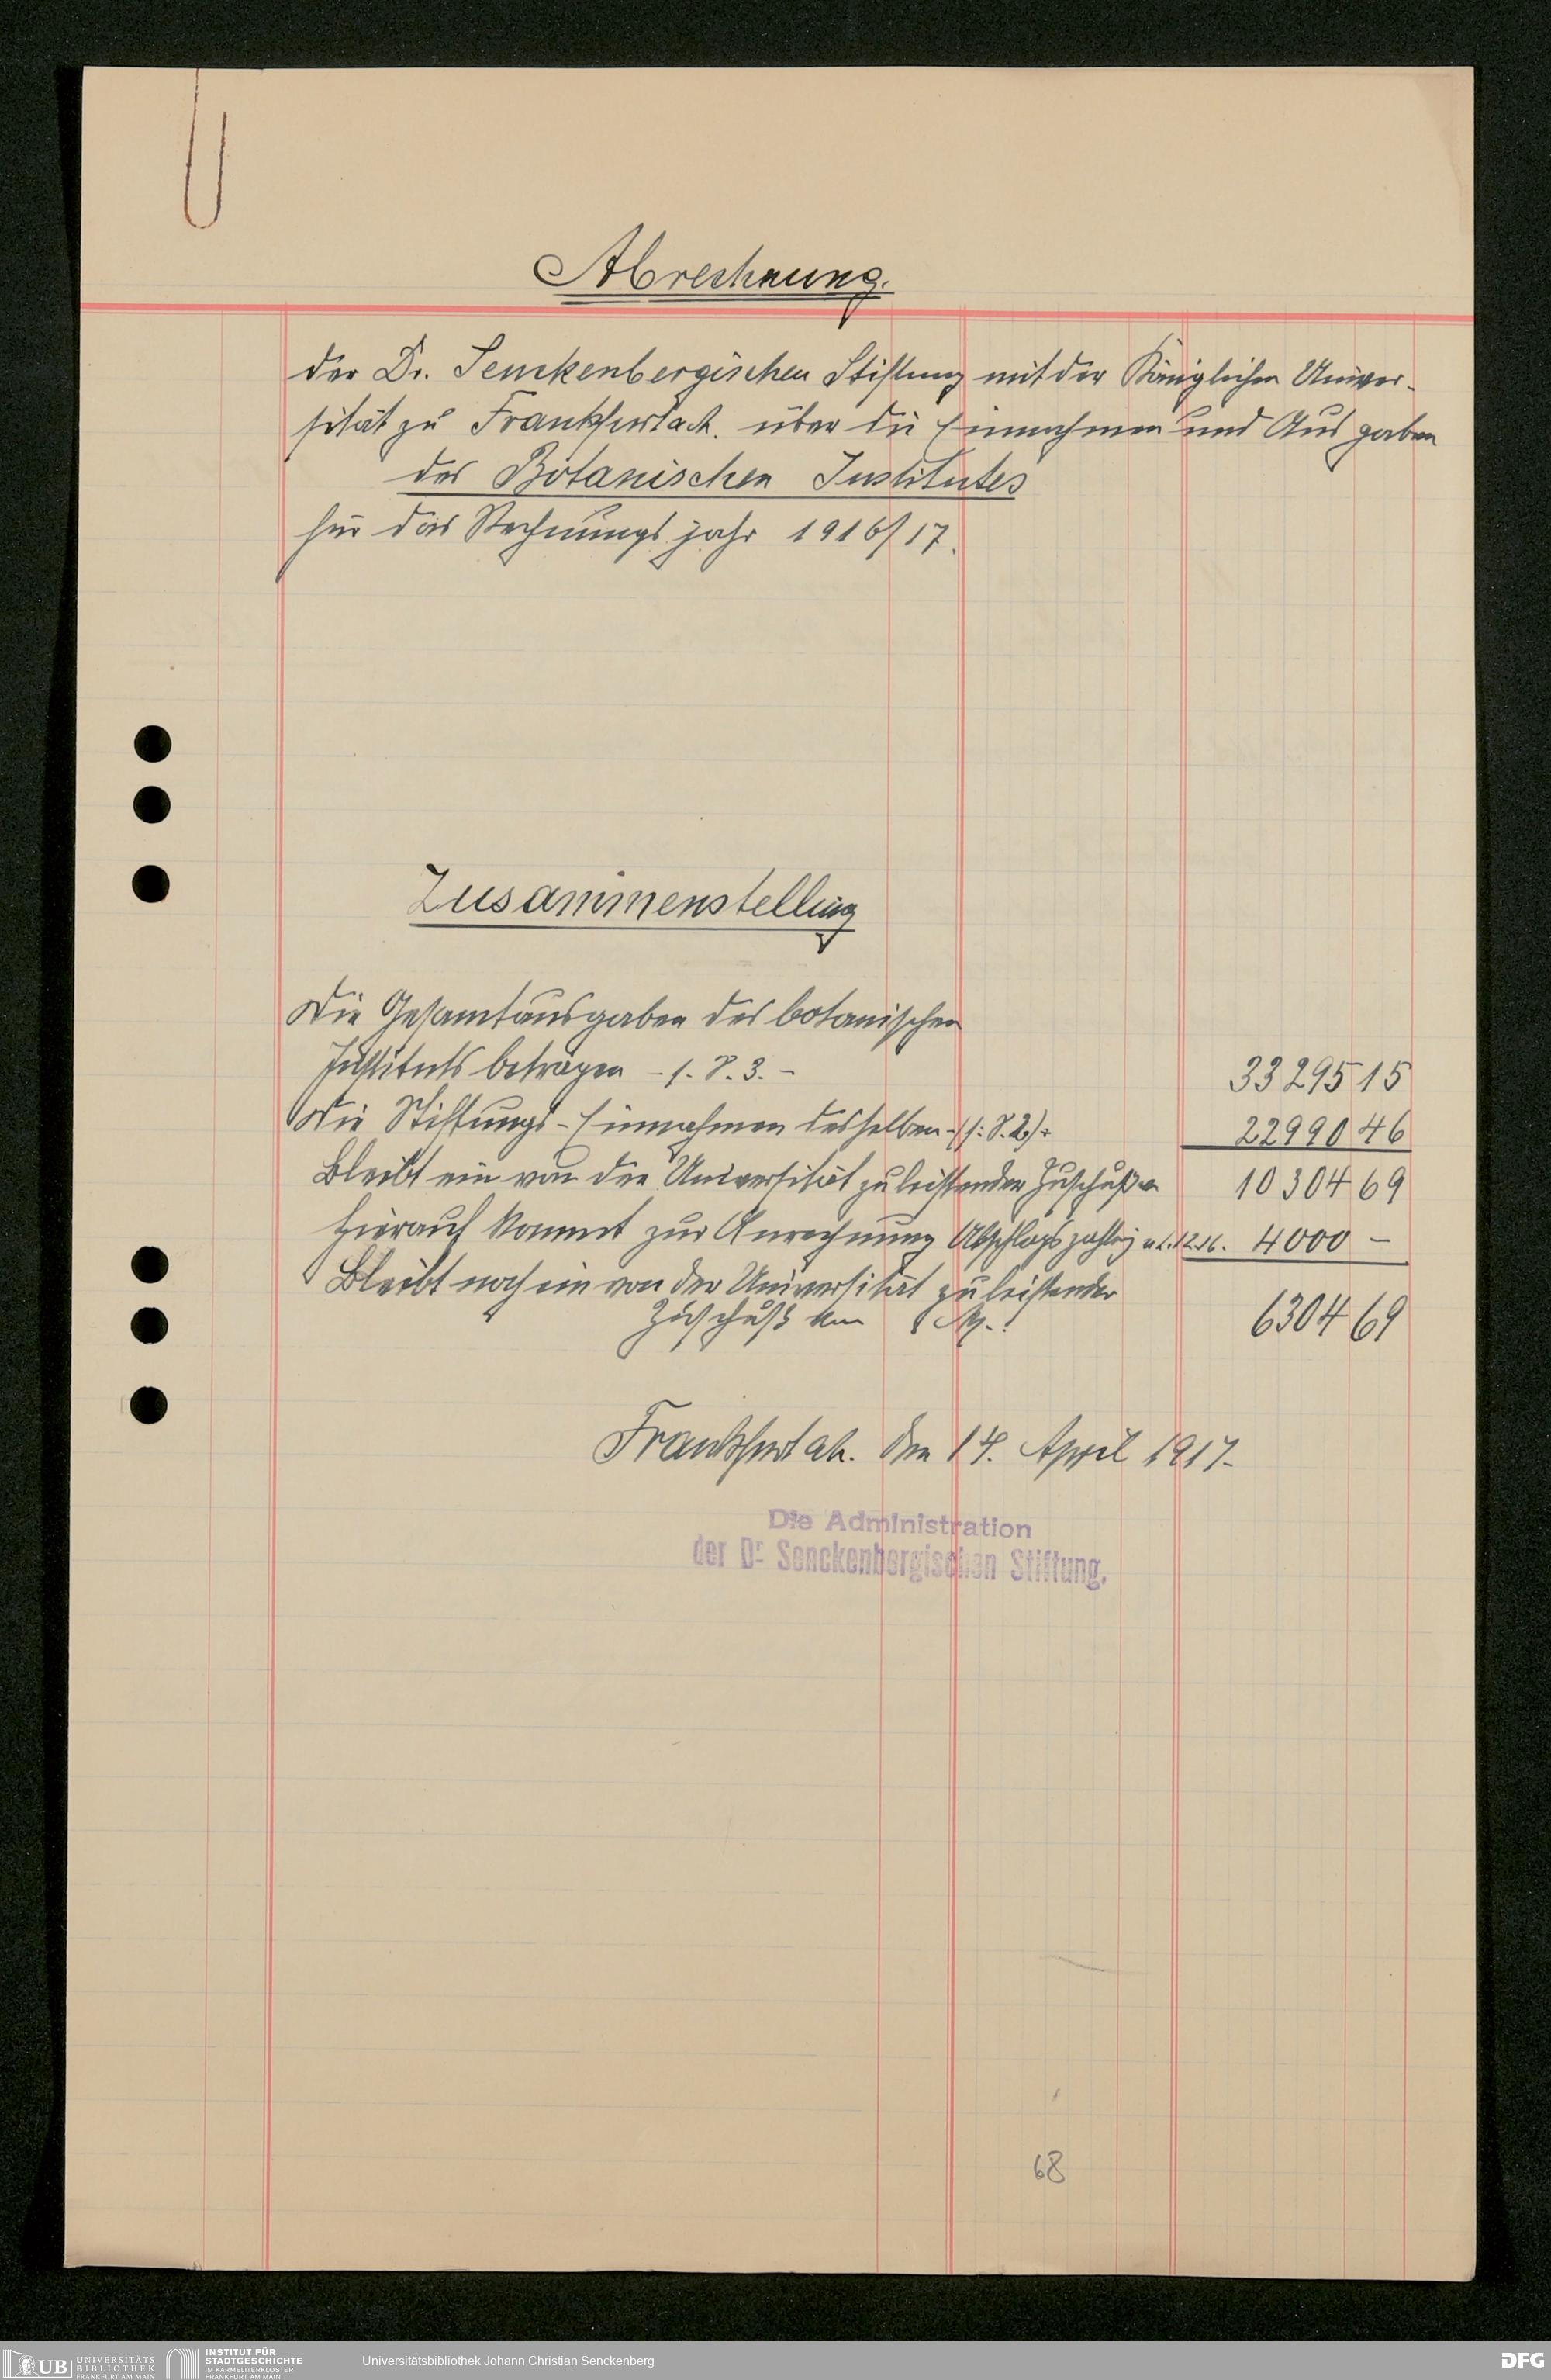 Abrechnung.
der Dr. Senckenbergischen Stiftung mit der Königlichen Univer-
sität zu Frankfurt a.M. über die Einnahmen und Ausgaben
des Botanischen Institutes
für das Rechnungsjahr 1916/17.
Zusammenstellung
Die Gesamtausgaben des botanischen
Instituts betragen - s. S. 3. - 33295 15
Die Stiftungs-Einnahmen desselben - (s. S. 2) - 22990 46
Bleibt ein von der Universität zu leistender Zuschuß 10304 69
Hierauf kommt zur Anrechnung Abschlagszahlung 12.16. 4000 -
Bleibt noch ein von der Universität zu leistender
Zuschuß von M. 6304 69
Frankfurt a.M. den 14. April 1917.
Die Administration
der Dr. Senckenbergischen Stiftung.
68
UB UNIVERSITÄTS
BIBLIOTHEK
FRANKFURT AM MAIN
INSTITUT FÜR
STADTGESCHICHTE
IM KARMELITERKLOSTER
FRANKFURT AM MAIN
Universitätsbibliothek Johann Christian Senckenberg
DFG